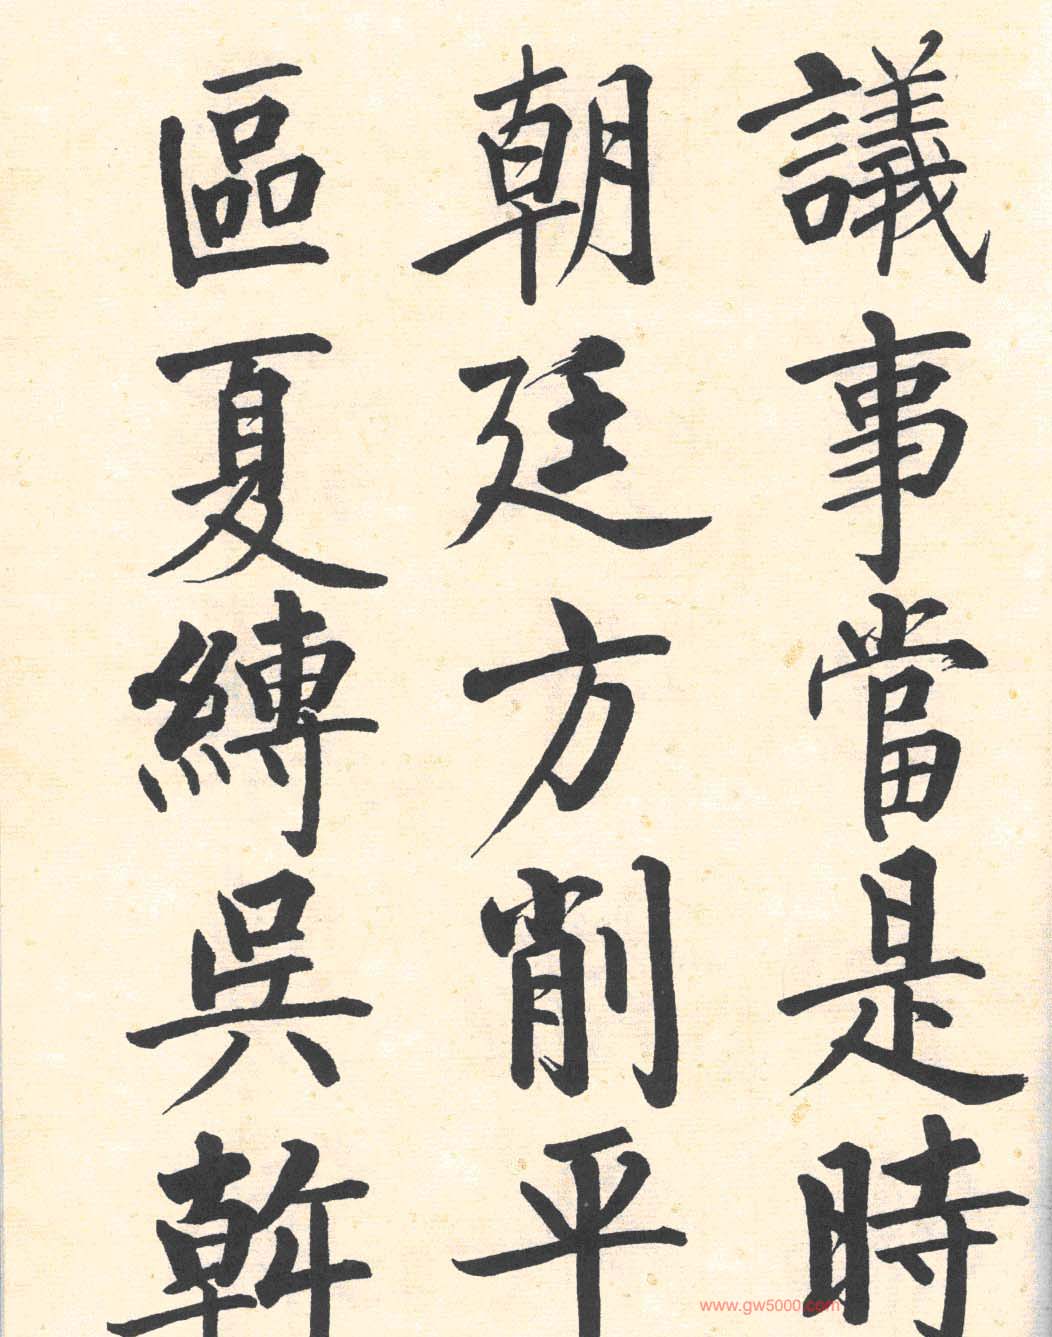 議事當是時
朝廷方削平
區夏縛吳斡
www.gw5000.com